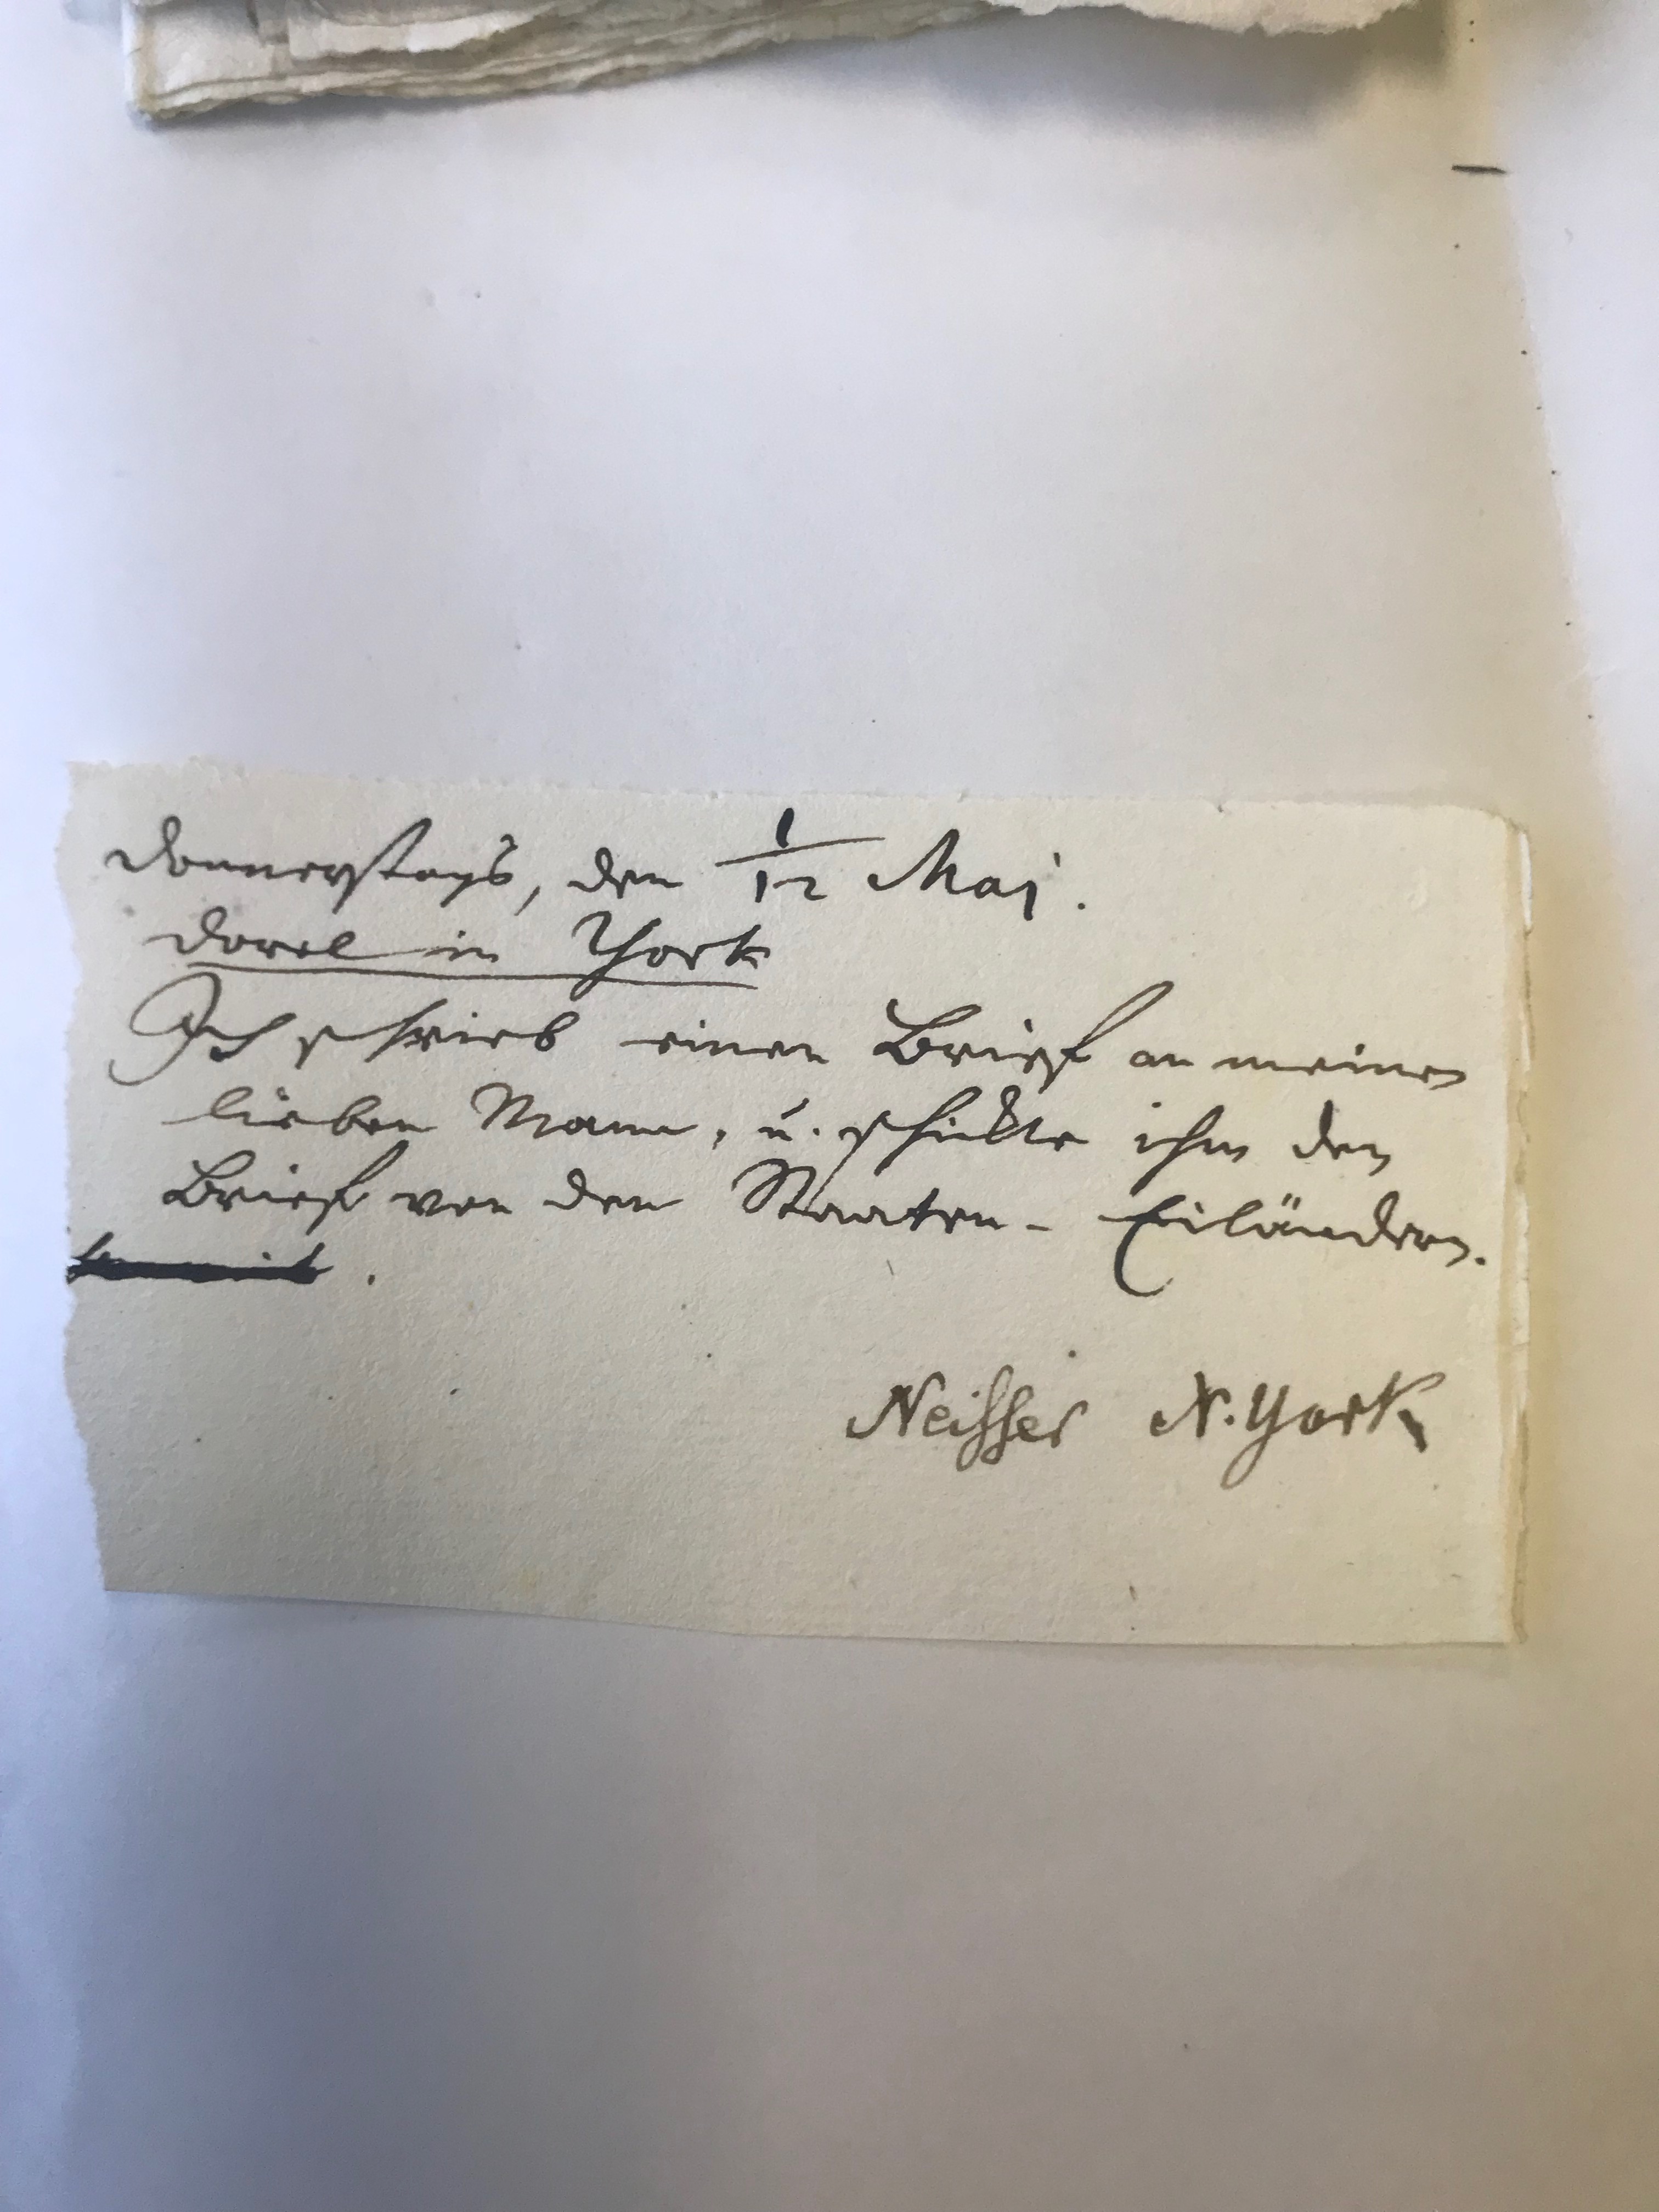 Donnerstags, den 1/12 Maj.
Dorel in York
Ich schrieb einen Brief an meinen
lieben Mann, u. schickte ihm den
Brief von den Staaten-Eiländern.
Neisser N. York